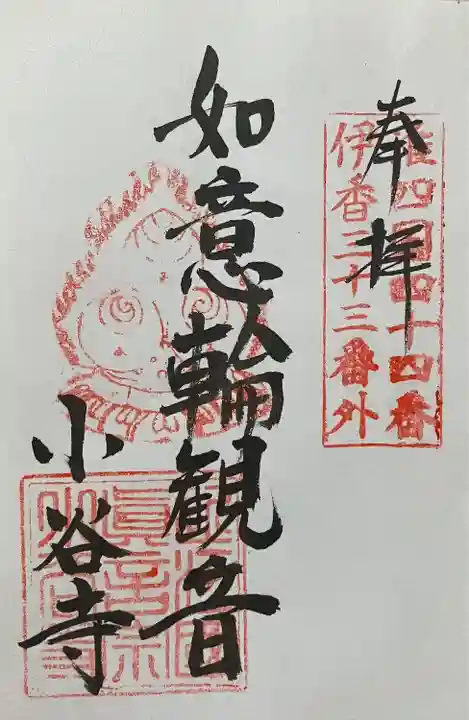 奉拝
准四国四十四番
伊香三十三番外
如意輪観音
小谷寺